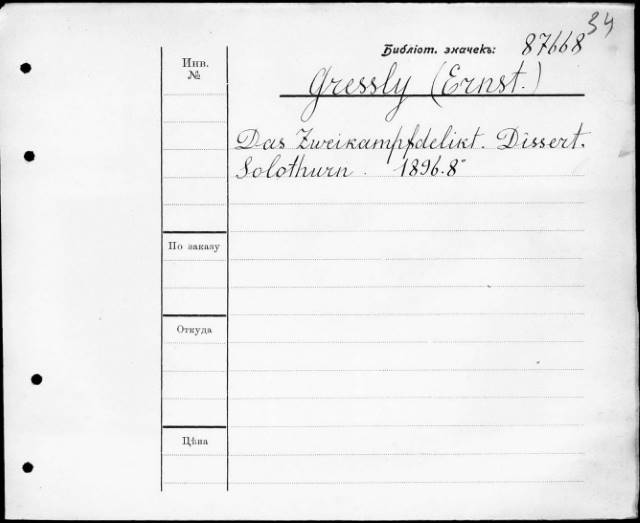 34
Библіот. значекъ: 87668
Инв.
№
Gressly (Ernst.)
Das Zweikampfdelikt. Dissert.
Solothurn. 1896. 8°
По заказу
Откуда
Цѣна